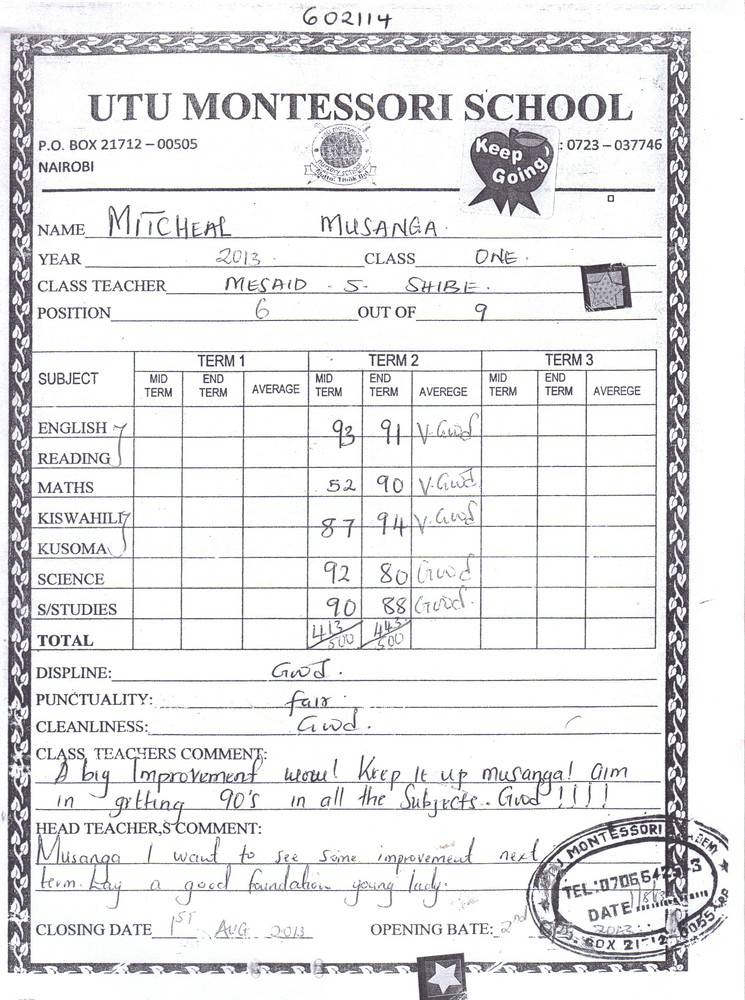 602114
UTU MONTESSORI SCHOOL
P.O. BOX 21712 – 00505 : 0723 – 037746
NAIROBI
Keep Going!
NAME MITCHEAL MUSANGA.
YEAR 2013. CLASS ONE.
CLASS TEACHER MESAID . S. SHIBE.
POSITION 6 OUT OF 9
SUBJECT TERM 1 TERM 2 TERM 3
MID TERM END TERM AVERAGE MID TERM END TERM AVEREGE MID TERM END TERM AVEREGE
ENGLISH 93 91 V.Good
READING
MATHS 52 90 V.Good
KISWAHILI 87 94 V.Good
KUSOMA
SCIENCE 92 80 Good
S/STUDIES 90 88 Good.
TOTAL 413/500 443/500
DISPLINE: Good.
PUNCTUALITY: fair.
CLEANLINESS: Good.
CLASS, TEACHERS COMMENT:
A big Improvement wow! Keep It up musanga! aim
in getting 90's in all the Subjects. Good !!!!
HEAD TEACHER,S COMMENT:
Musanga I want to see some improvement next
term. Lay a good foundation young lady.
MONTESSORI
TEL:070564
DATE
2013
BOX 21712
CLOSING DATE 1ST AUG 2013 OPENING BATE: 2nd